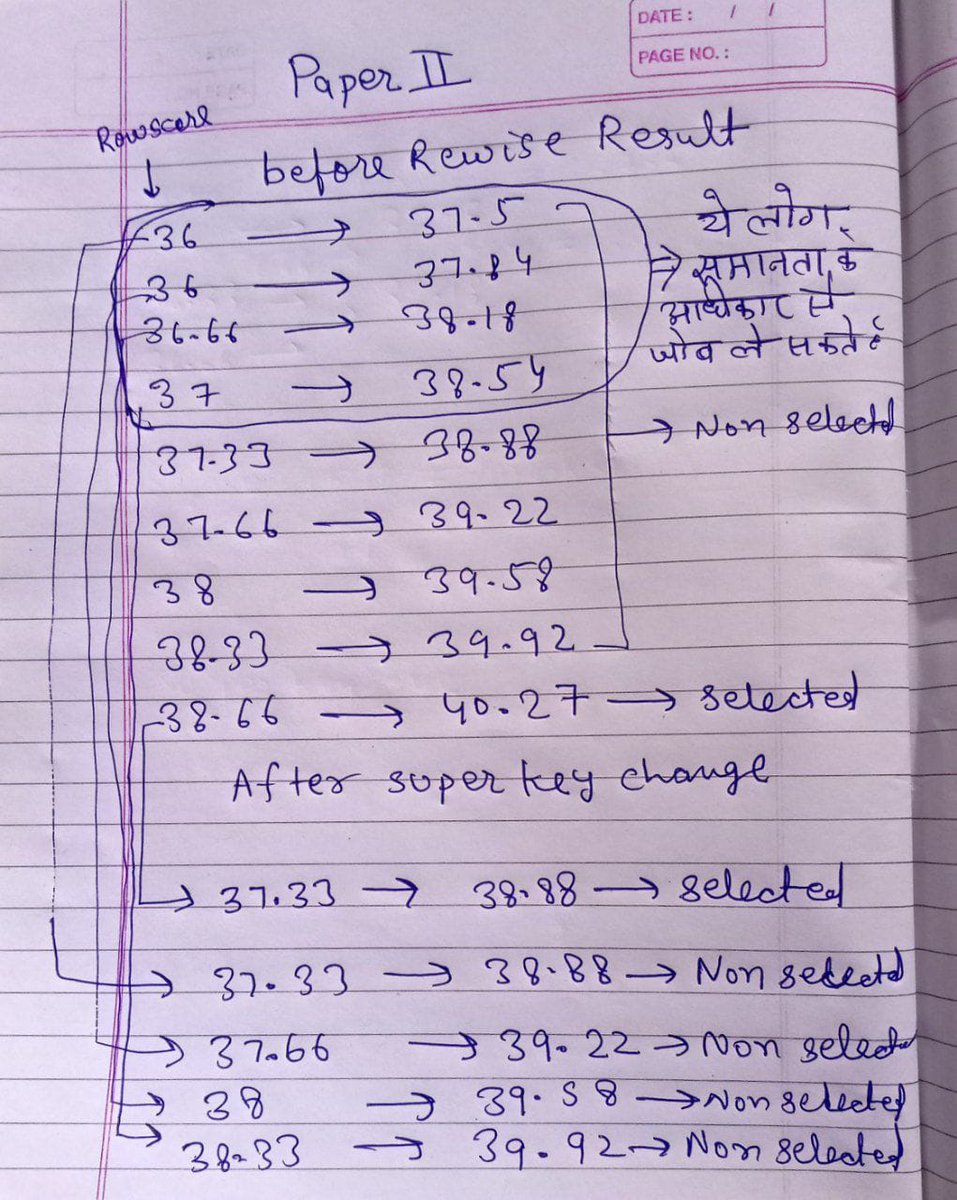 DATE: / /
PAGE NO.:
Paper II
Rowscore
before Rewise Result
36 → 37.5
36 → 37.84
36.66 → 38.18
37 → 38.54
37.33 → 38.88
37.66 → 39.22
38 → 39.58
38.33 → 39.92
38.66 → 40.27 → selected
⇒ ये लोग
समानता के
अधिकार से
जोब ले सकते है
→ Non selectd
After super key change
37.33 → 38.88 → selected
37.33 → 38.88 → Non selectd
37.66 → 39.22 → Non selected
38 → 39.58 → Non selected
38.33 → 39.92 → Non selected